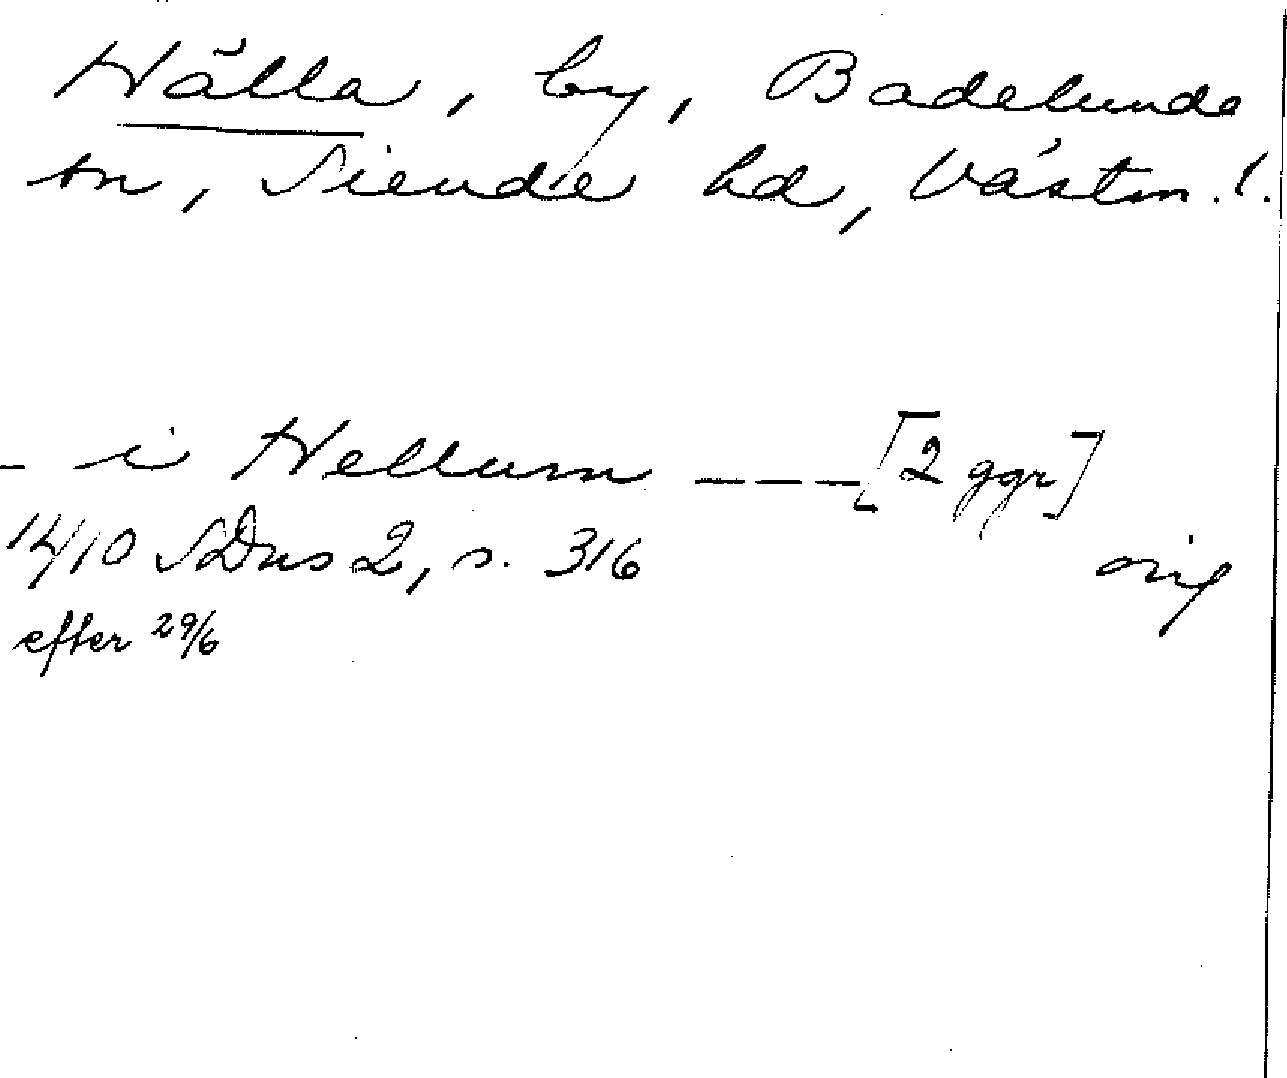 Hälla, by, Badelunda
sn, Siende hd, Västm. l.
- i Hellum ---- [2 ggr]
14/10 SDns 2, s. 316
orig
efter 29/6